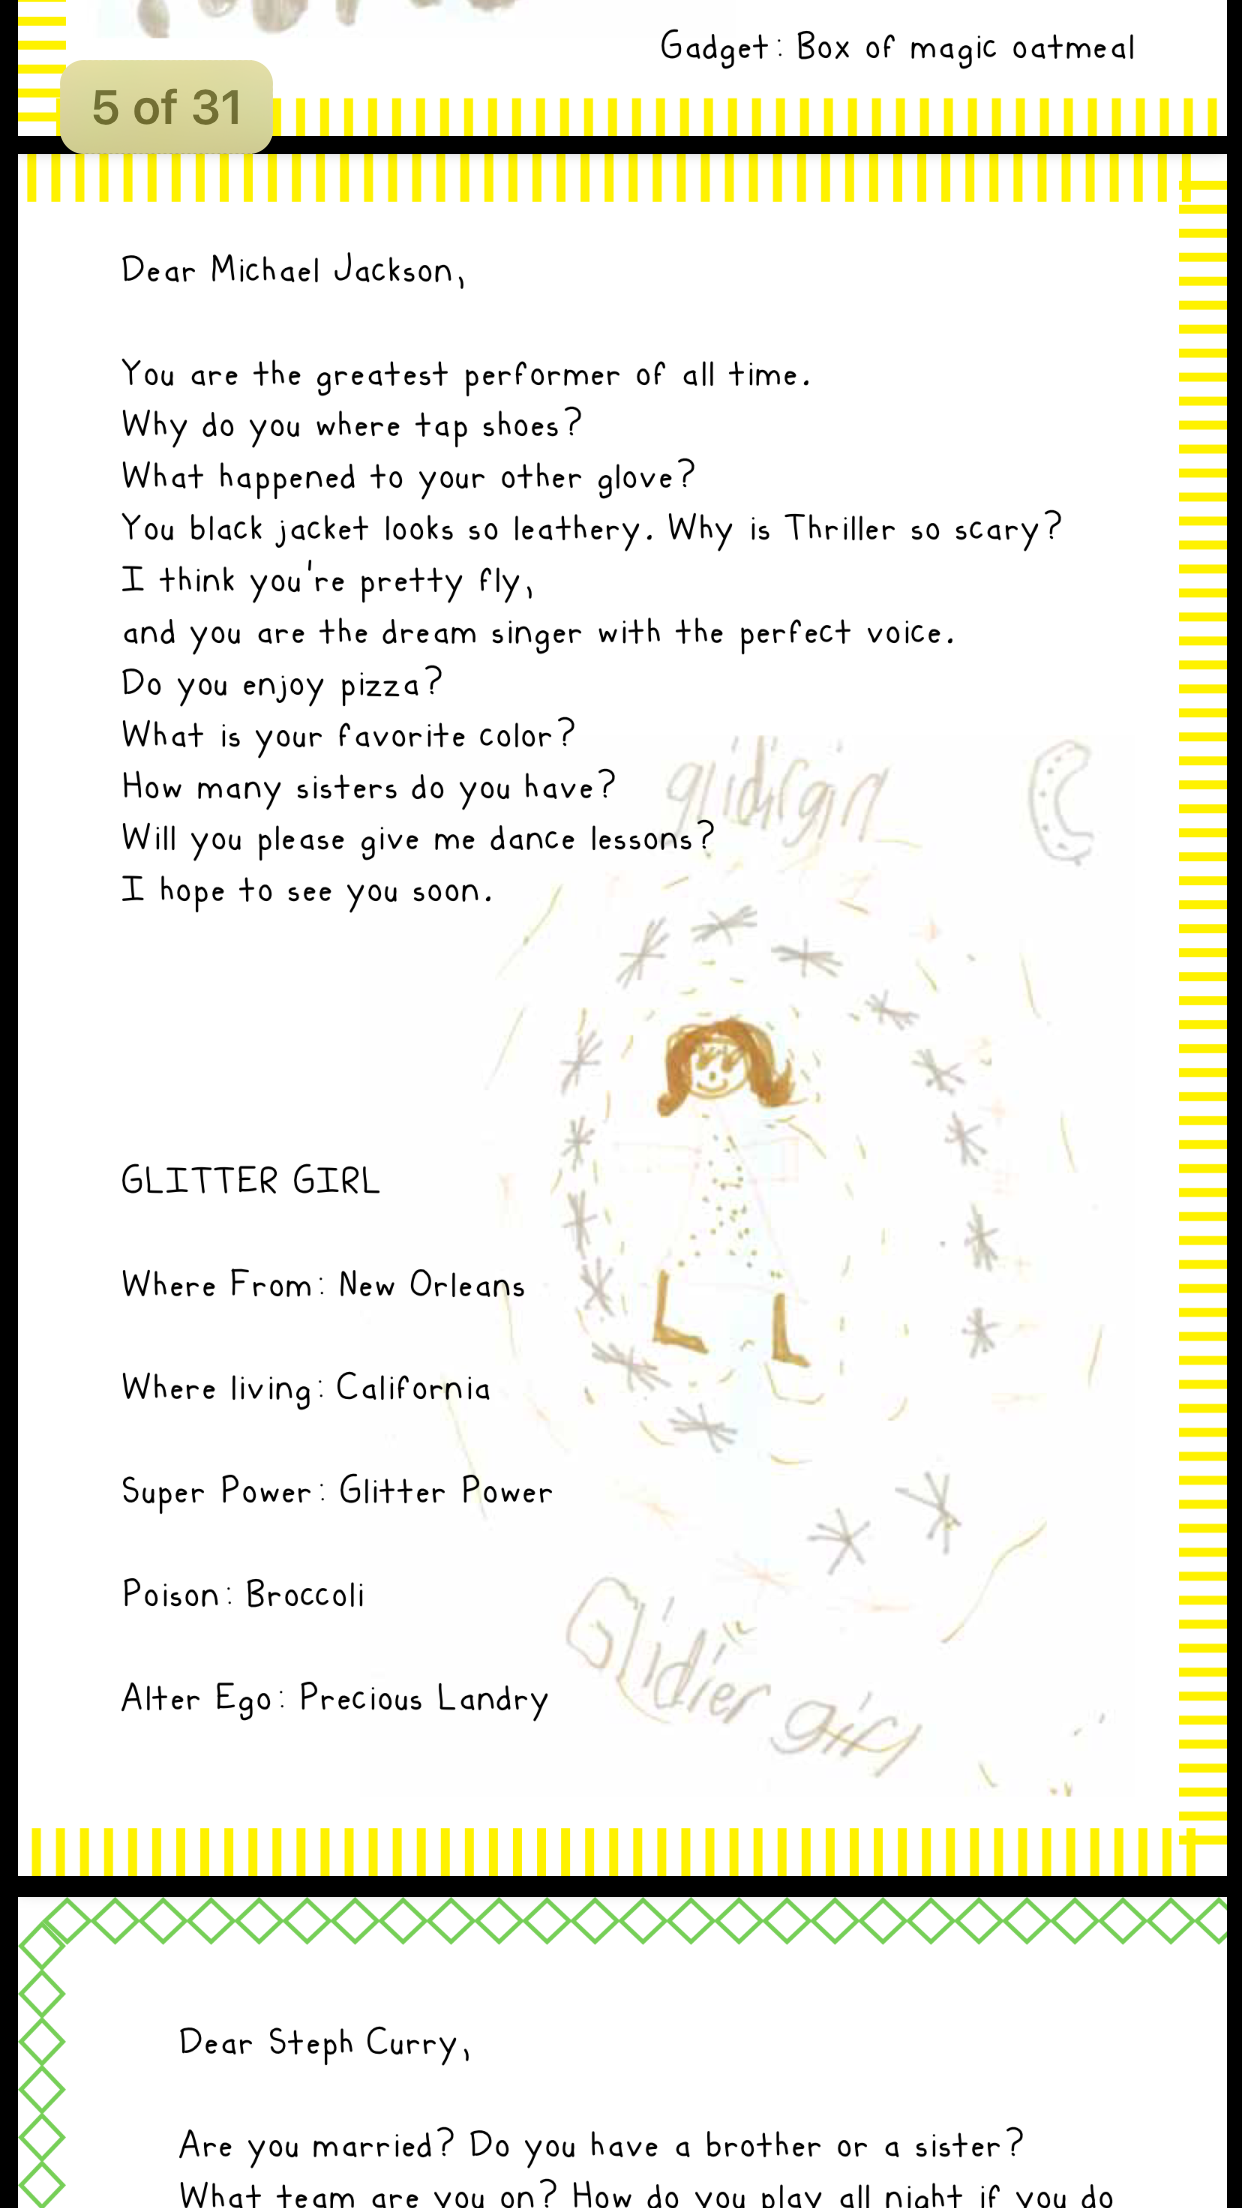 Gadget: Box of magic oatmeal
5 of 31
Dear Michael Jackson,
You are the greatest performer of all time.
Why do you where tap shoes?
What happened to your other glove?
You black jacket looks so leathery. Why is Thriller so scary?
I think you're pretty fly,
and you are the dream singer with the perfect voice.
Do you enjoy pizza?
What is your favorite color?
How many sisters do you have?
Will you please give me dance lessons?
I hope to see you soon.
GLITTER GIRL
Where From: New Orleans
Where living: California
Super Power: Glitter Power
Poison: Broccoli
Alter Ego: Precious Landry
Glidier girl
Dear Steph Curry,
Are you married? Do you have a brother or a sister?
What team are you on? How do you play all night if you do